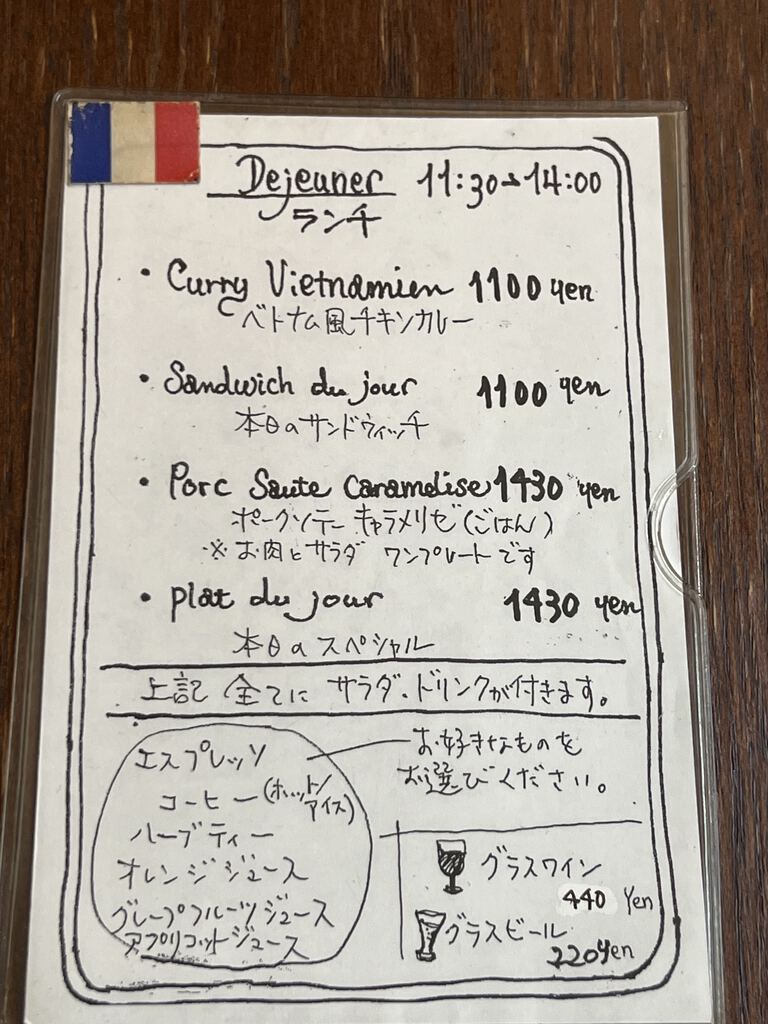 Dejeuner 11:30→14:00
ランチ
・Curry Vietnamien 1100 yen
ベトナム風チキンカレー
・Sandwich du jour 1100 yen
本日のサンドウィッチ
・Porc Saute Caramelise 1430 yen
ポークソテー キャラメリゼ(ごはん)
※お肉とサラダ ワンプレートです
・plat du jour 1430 yen
本日のスペシャル
上記 全てに サラダ、ドリンクが付きます。
エスプレッソ
コーヒー(ホット/アイス)
ハーブティー
オレンジジュース
グレープフルーツジュース
アプリコットジュース
お好きなものを
お選びください。
グラスワイン
440 Yen
グラスビール
220yen